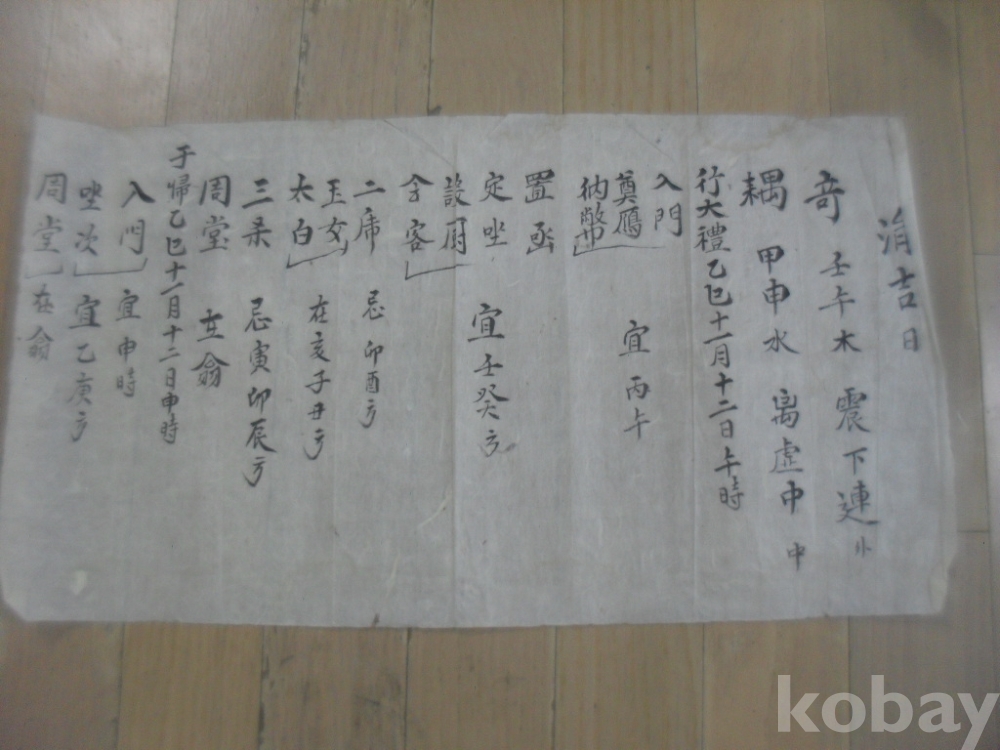 涓吉日
奇 壬午木 震下連 小
耦 甲申水 离虛中 中
行大禮乙巳十一月十二日午時
入門
奠鴈 宜丙午
納幣
置函
定坐 宜壬癸方
設廚
客
二席 忌卯酉方
玉女 在亥子丑方
太白
三杀 忌寅卯辰方
周堂 在翁
于歸乙巳十一月十二日申時
入門 宜申時
坐次 宜乙庚方
周堂 在翁
kobay